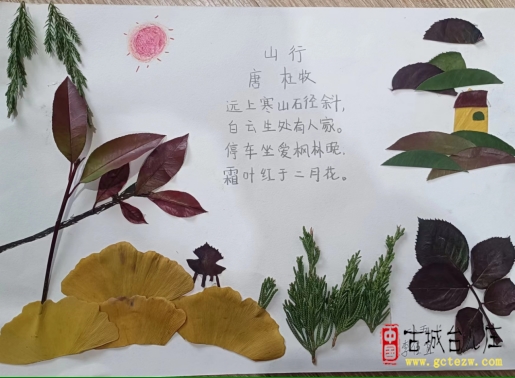 山行
唐 杜牧
远上寒山石径斜,
白云生处有人家。
停车坐爱枫林晚.
霜叶红于二月花。
中国
古城台儿庄
www.gctezw.com